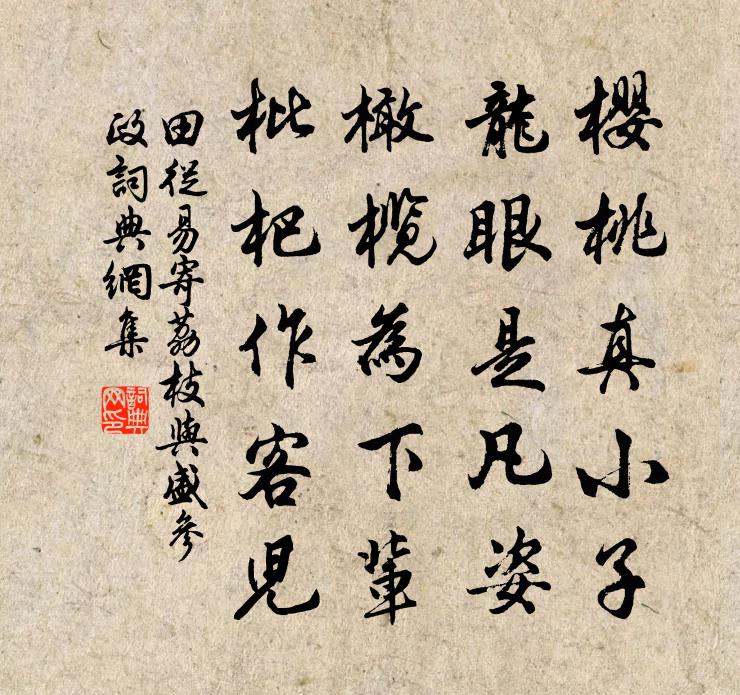 櫻桃真小子
龍眼是凡姿
橄欖為下輩
枇杷作客兒
田從易寄荔枝與盛參
政詞典網集
詞典
网印